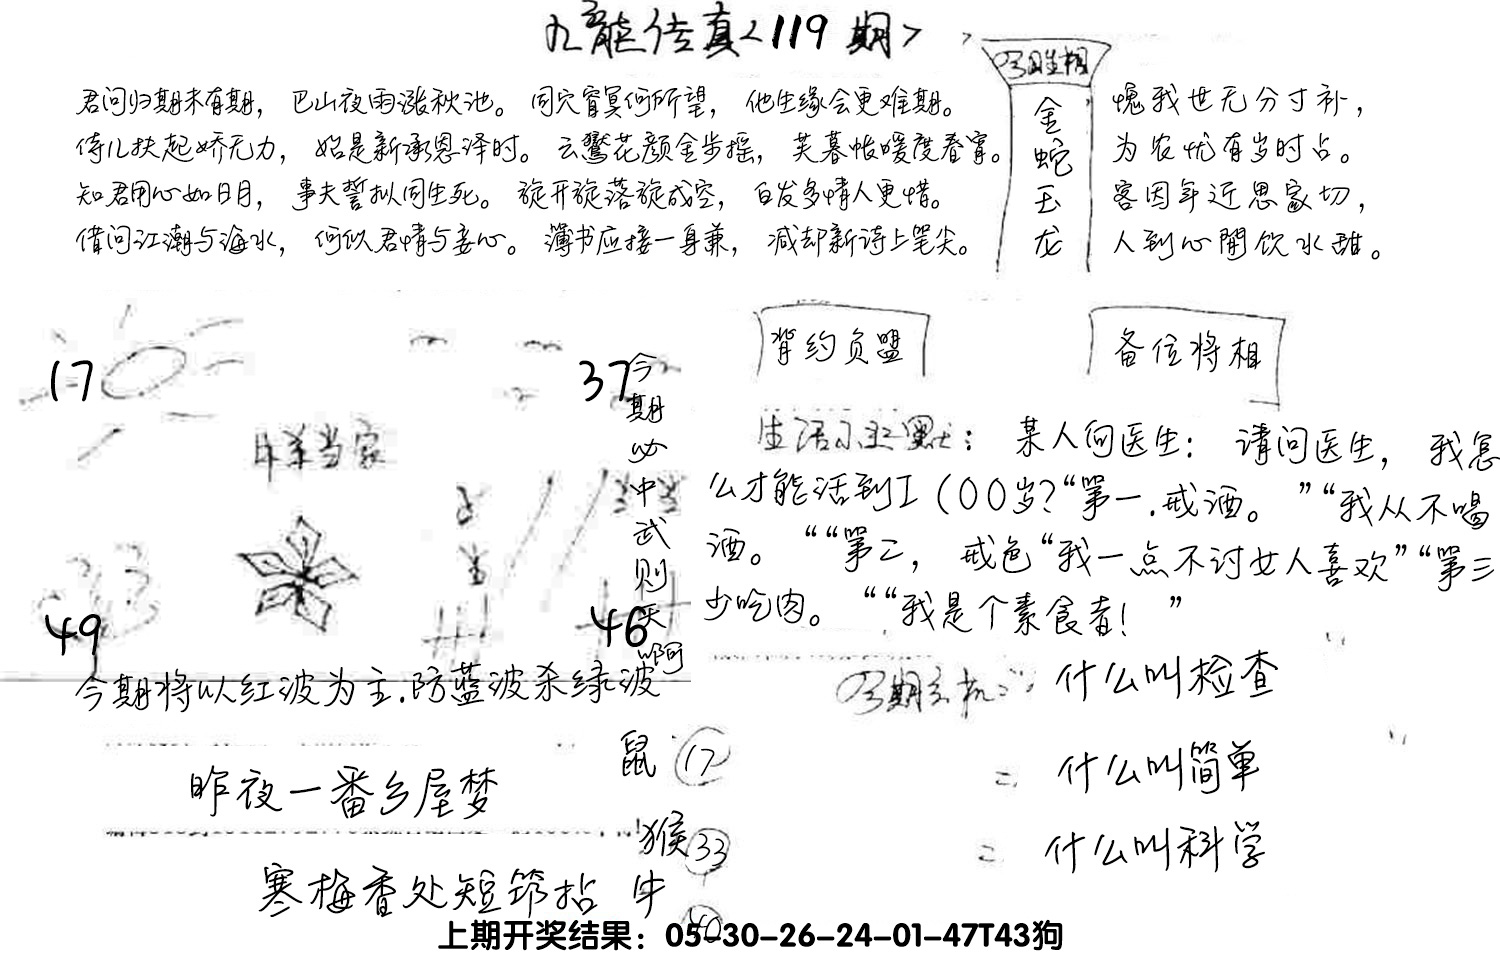 九龙传真<119期>
君问归期未有期，巴山夜雨涨秋池。同穴窅冥何所望，他生缘会更难期。
侍儿扶起娇无力，始是新承恩泽时。云鬓花颜金步摇，芙暮帐暖度春宵。
知君用心如日月，事夫誓拟同生死。旋开旋落旋成空，白发多情人更惜。
借问江潮与海水，何似君情与妾心。薄书应接一身兼，减却新诗上笔尖。
金蛇玉龙
愧我世无分寸补，
为农忧有岁时占。
客因年近思家切，
人到心閒饮水甜。
17
37
今期必中武则天啊
当家
49
46
今期将以红波为主.防蓝波杀绿波
背约负盟
备位将相
生活幽默：某人问医生：请问医生，我怎
么才能活到I(00岁?“第一.戒酒。”“我从不喝
酒。““第二，戒色“我一点不讨女人喜欢”“第三
少吃肉。““我是个素食者！”
今期玄机：什么叫检查
= 什么叫简单
= 什么叫科学
昨夜一番乡屋梦
寒梅香处短筇拈
鼠 17
猴 33
牛
上期开奖结果：05-30-26-24-01-47T43狗